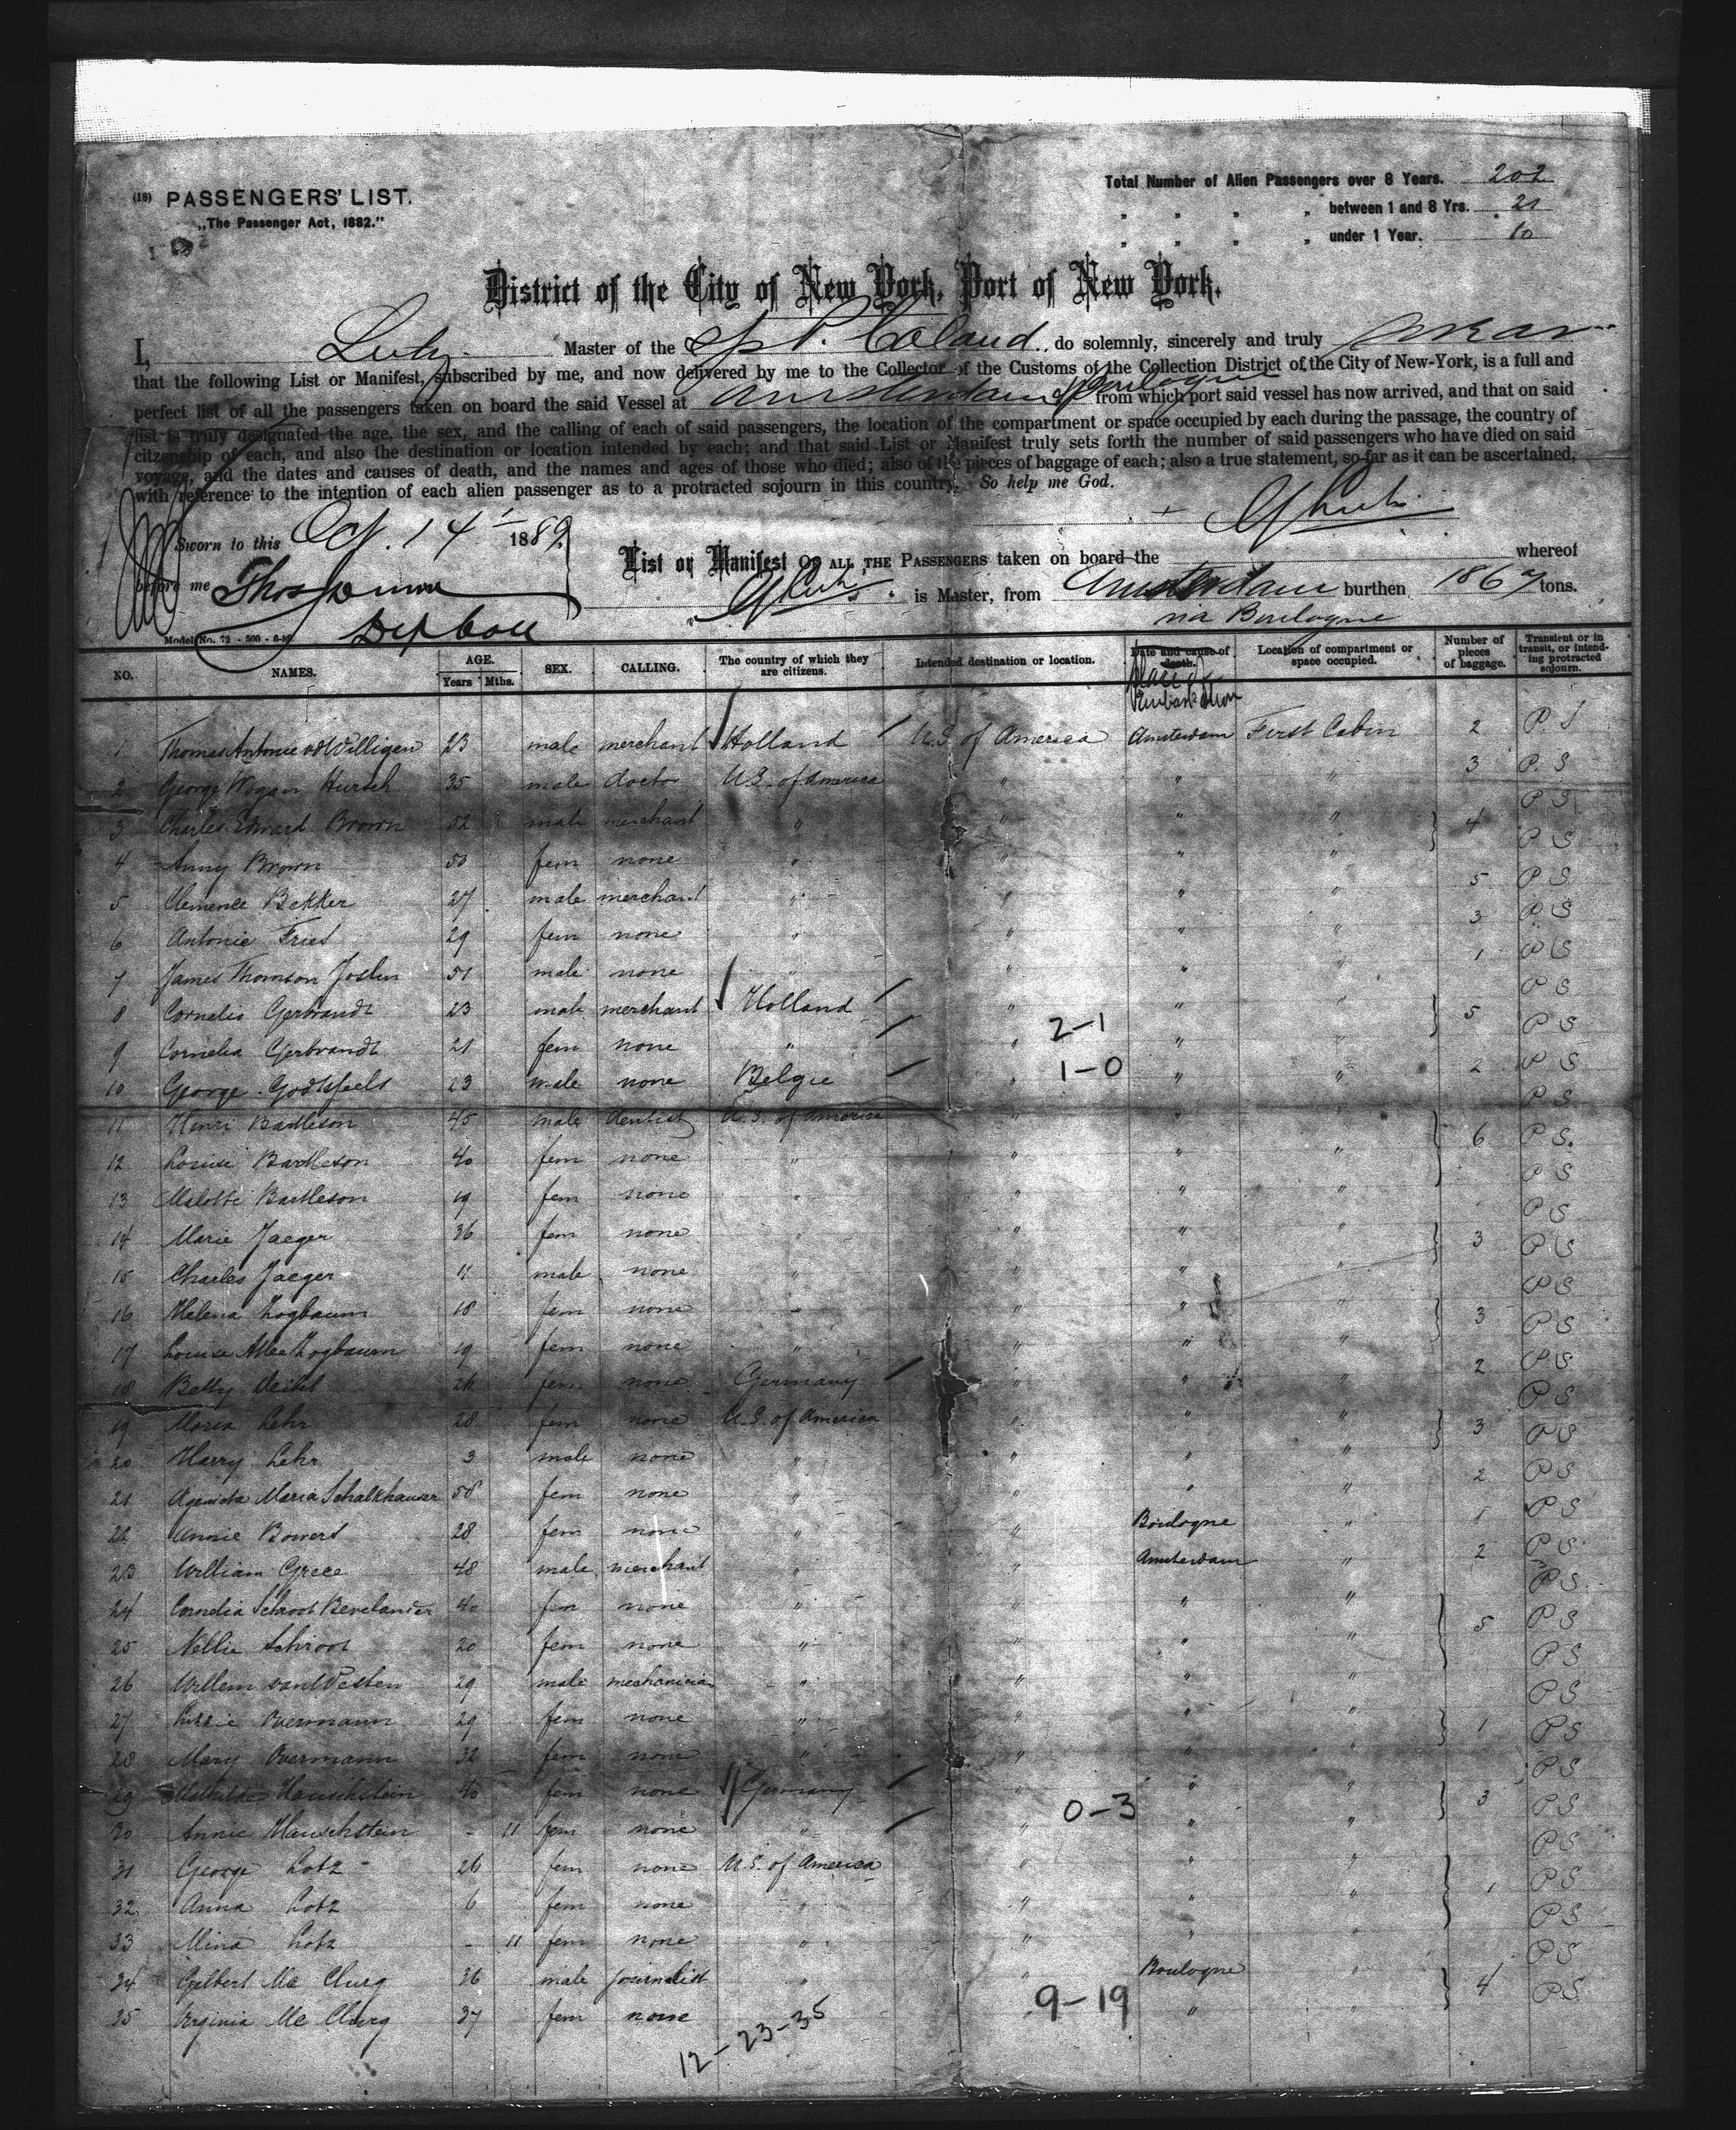 (18) PASSENGERS' LIST.
„The Passenger Act, 1882."
Total Number of Alien Passengers over 8 Years. 202
„ „ „ „ between 1 and 8 Yrs. 21
„ „ „ „ under 1 Year. 10
District of the City of New York, Port of New York.
I, Master of the P. Caland do solemnly, sincerely and truly swear
that the following List or Manifest, subscribed by me, and now delivered by me to the Collector of the Customs of the Collection District of the City of New-York, is a full and
perfect list of all the passengers taken on board the said Vessel at Amsterdam & Boulogne from which port said vessel has now arrived, and that on said
list is truly designated the age, the sex, and the calling of each of said passengers, the location of the compartment or space occupied by each during the passage, the country of
citzenship of each, and also the destination or location intended by each; and that said List or Manifest truly sets forth the number of said passengers who have died on said
voyage, and the dates and causes of death, and the names and ages of those who died; also of the pieces of baggage of each; also a true statement, so far as it can be ascertained,
with reference to the intention of each alien passenger as to a protracted sojourn in this country. So help me God.
Sworn to this Oct. 14 1889
before me
List or Manifest OF ALL THE PASSENGERS taken on board the whereof
is Master, from Amsterdam burthen 1867 tons.
via Boulogne
Model No. 72 - 500 - 6-89
NO. NAMES. AGE. Years Mths. SEX. CALLING. The country of which they are citizens. Intended destination or location. Date and cause of death. Location of compartment or space occupied. Number of pieces of baggage. Transient or in transit, or intending protracted sojourn.
Place of Embarkation
1 Thomas Antonie vd Willigen 23 male merchant Holland U.S. of America Amsterdam First Cabin 2 P. S
2 George Wogan Hursch 35 male doctor U.S. of America " " " 3 P. S
3 Charles Edward Brown 52 male merchant " " " " 4 P S
4 Anny Brown 50 fem none " " " " P S
5 Clemence Bekker 27 male merchant " " " " 5 P S
6 Antonie Fries 29 fem none " " " " 3 P S
7 James Thomson Joslin 51 male none " " " " 1 P S
8 Cornelis Gerbrandt 23 male merchant Holland " " " 5 P S
2-1
9 Cornelia Gerbrandt 21 fem none " " " " P S
1-0
10 George 23 male none Belgie " " " 2 P S
11 Henri Bartleson 45 male dentist U.S. of America " " " 6 P S
12 Louise Bartleson 40 fem none " " " " P S.
13 Malotte Bartleson 19 fem none " " " " P S
14 Marie Jaeger 36 fem none " " " " 3 P S
15 Charles Jaeger 11 male none " " " " P S
16 Helena Zogbaum 18 fem none " " " " 3 P S
17 Louise Zogbaum 19 fem none " " " " P S
18 Betty 26 fem none Germany " " " 2 P S
19 Maria Lehr 28 fem none U.S. of America " " " 3 P S
20 Harry Lehr 3 male none " " " " P S
21 Maria Schalkhauser 58 fem none " " " " 2 P S
22 Annie Bowers 28 fem none " " Boulogne " 1 P S
23 William Grece 48 male merchant " " Amsterdam " 2 P S
24 Cornelia Schroot Bevelander 40 fem none " " " " 5 P S
25 Nellie Schroot 20 fem none " " " " P S
26 Willem van Westen 29 male mechanician " " " " P S
27 Lizzie Overmann 29 fem none " " " " 1 P S
28 Mary Overmann 32 fem none " " " " P S
29 Mathilde Hauschstein 40 fem none Germany " " " 3 P S
0-3
30 Annie Hauschstein - 11 fem none " " " " P S
31 George Lotz 26 fem none U.S. of America " " " 1 P S
32 Anna Lotz 6 fem none " " " " P S
33 Mina Lotz - 11 fem none " " " " P S
34 Gilbert Mc Clurg 36 male journalist " " Boulogne " 4 P S
35 Virginia Mc Clurg 37 fem none " " " " P S
9-19
12-23-35